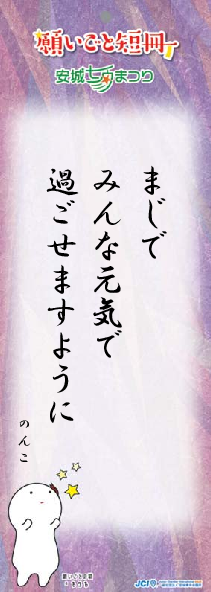 願いごと短冊
安城七夕まつり
まじで
みんな元気で
過ごせますように
のんこ
願いごと短冊
JCI